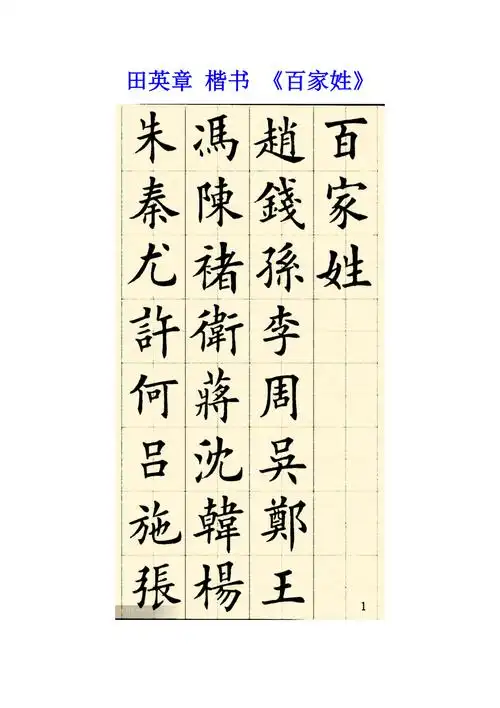 田英章 楷书 《百家姓》
百家姓
趙錢孫李周吳鄭王
馮陳褚衛蔣沈韓楊
朱秦尤許何呂施張
1